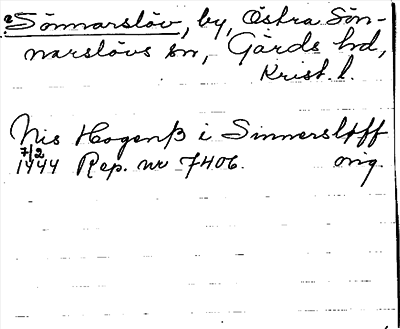 Sönnarslöv, by, Östra Sön-
narslövs sn, Gärds hd,
Krist. l.
Nis Hogenß i Sinnersløff
7/2
1444 Rep. nr 7406. orig.